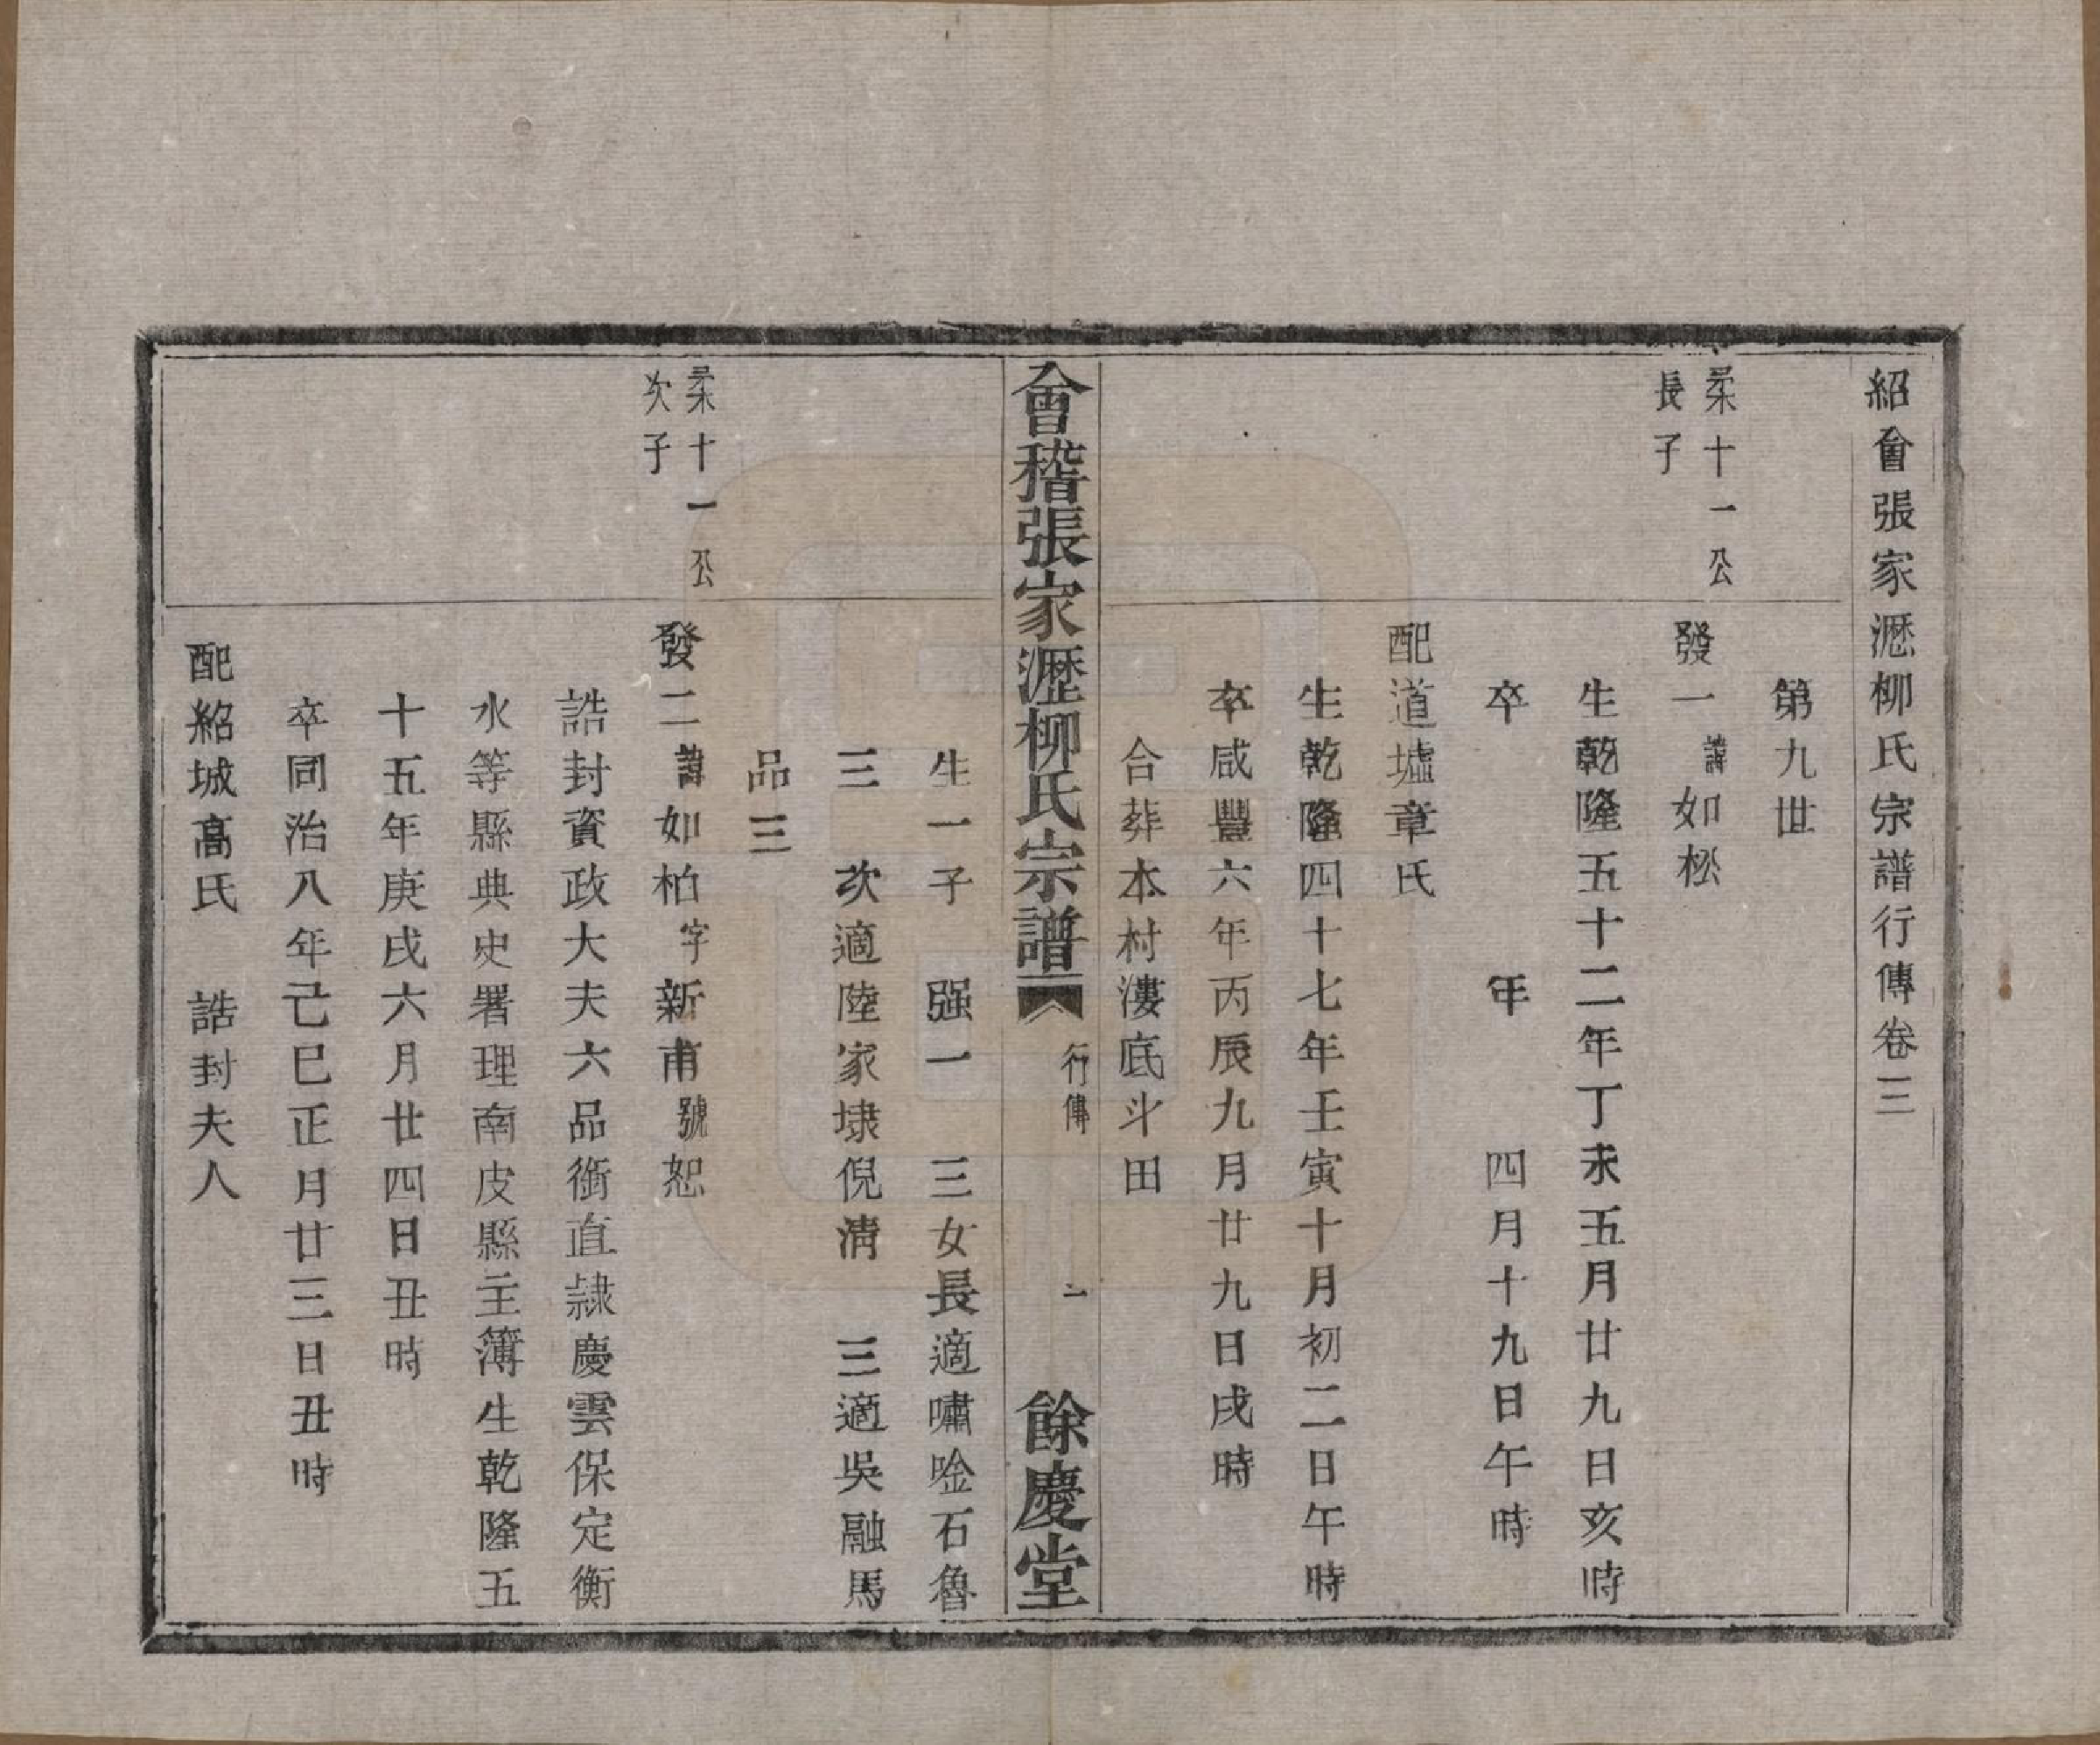 紹會張家瀝柳氏宗譜行傳卷三
第九世
柔十一公
長子
發一諱如松
生乾隆五十二年丁未五月廿九日亥時
卒　年　四月十九日午時
配道墟章氏
生乾隆四十七年壬寅十月初二日午時
卒咸豐六年丙辰九月廿九日戌時
合葬本村漊底斗田
會稽張家瀝柳氏宗譜　行傳　二　餘慶堂
生一子　强一　三女長適嘯唫石魯
三　次適陸家埭倪淸　三適吳融馬
品三
柔十一公
次子
發二諱如柏字新甫號恕
誥封資政大夫六品銜直隷慶雲保定衡
水等縣典史署理南皮縣主簿生乾隆五
十五年庚戌六月廿四日丑時
卒同治八年己巳正月廿三日丑時
配紹城高氏　誥封夫人